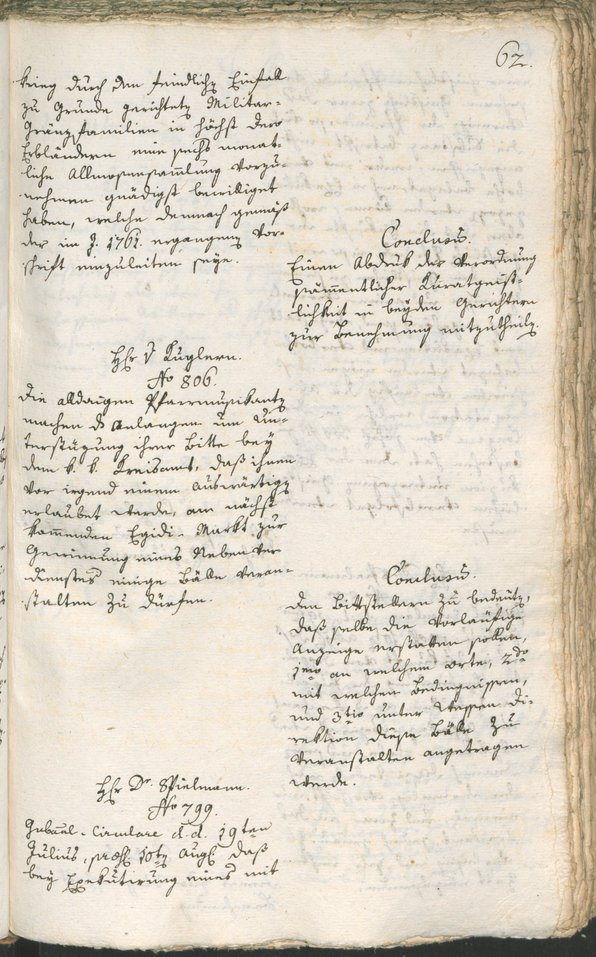 62.
krieg durch den feindlichen Einfall
zu Grunde gerichteten Militar-
Gränzfamilien in höchst dero
Erbländern eine sechs monat-
liche Allmosensammlung vorzu-
nehmen gnädigst bewilliget
haben, welche demnach gemäß
der im J. 1761. ergangenen Vor-
schrift einzuleiten seye.
Conclusum.
Einen Abdruk der Verordnung
sämmentlicher Kuratgeist-
lichkeit in beyden Gerichtern
zur Benehmung mitzutheilen.
Hhr v Kuglern.
No 806.
Die alldaigen Pfarrmusikanten
machen das Anlangen um Un-
terstüzung ihrer Bitte bey
dem k. k. Kreisamt, daß ihnen
vor irgend einem Auswärtigen
erlaubet werde, am nächst
kommenden Egidi-Markt zur
Gewinnung eines Nebenver
dienstes einige Bälle veran-
stalten zu dürfen.
Conclusum.
Den Bittstellern zu bedeuten,
daß selbe die Vorläufige
Anzeige erstatten sollen,
1mo an welchem Orte, 2do
mit welchen Bedingnissen,
und 3tio unter wessen Di-
rektion diese Bälle zu
veranstalten angetragen
werde.
Hhr Dr. Spielmann.
No 799.
Gubernal-Circulare d. d. 19ten
Julius, praes. 10ten Aug. daß
bey Exekutirung eines mit